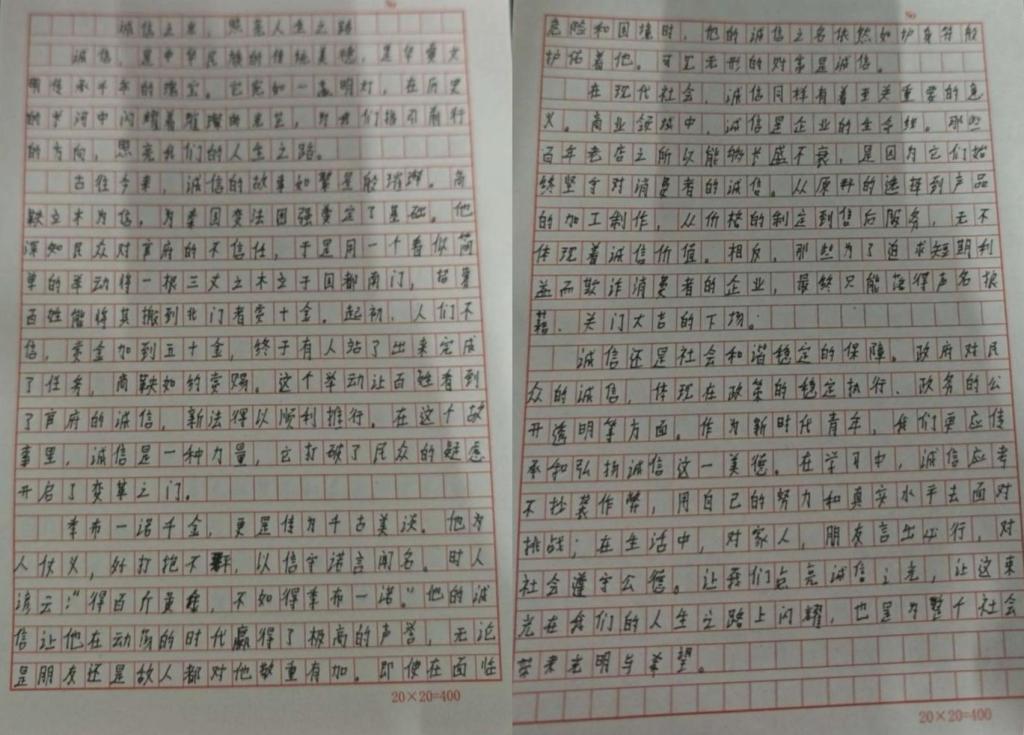 诚信之光，照亮人生之路
诚信，是中华民族的传统美德，是华夏文
明传承千年的瑰宝。它宛如一盏明灯，在历史
的长河中闪耀着璀璨的光芒，为我们指引前行
的方向，照亮我们的人生之路。
古往今来，诚信的故事如繁星般璀璨。商
鞅立木为信，为秦国变法图强奠定了基础。他
深知民众对官府的不信任，于是用一个看似简
单的举动将一根三丈之木立于国都南门，招募
百姓能将其搬到北门者赏十金。起初，人们不
信，赏金加到五十金，终于有人站了出来完成
了任务，商鞅如约赏赐。这个举动让百姓看到
了官府的诚信，新法得以顺利推行。在这个故
事里，诚信是一种力量，它打破了民众的疑虑
开启了变革之门。
季布一诺千金，更是传为千古美谈。他为
人仗义，好打抱不平，以信守诺言闻名。时人
谚云："得百斤黄金，不如得季布一诺。"他的诚
信让他在动荡的时代赢得了极高的声誉，无论
是朋友还是敌人都对他敬重有加。即使在面临
危险和困境时，他的诚信之名依然如护身符般
护佑着他。可见无形的财富是诚信。
在现代社会，诚信同样有着至关重要的意
义。商业领域中，诚信是企业的生命线。那些
百年老店之所以能够长盛不衰，是因为它们始
终坚守对消费者的诚信。从原料的选择到产品
的加工制作，从价格的制定到售后服务，无不
体现着诚信价值。相反，那些为了追求短期利
益而欺诈消费者的企业，最终只能落得声名狼
藉、关门大吉的下场。
诚信还是社会和谐稳定的保障。政府对民
众的诚信，体现在政策的稳定执行、政务的公
开透明等方面。作为新时代青年，我们更应传
承和弘扬诚信这一美德。在学习中，诚信应考
不抄袭作弊，用自己的努力和真实水平去面对
挑战；在生活中，对家人，朋友言出必行，对
社会遵守公德。让我们点亮诚信之光，让这束
光在我们的人生之路上闪耀，也是为整个社会
带来光明与希望。
20×20=400
20×20=400